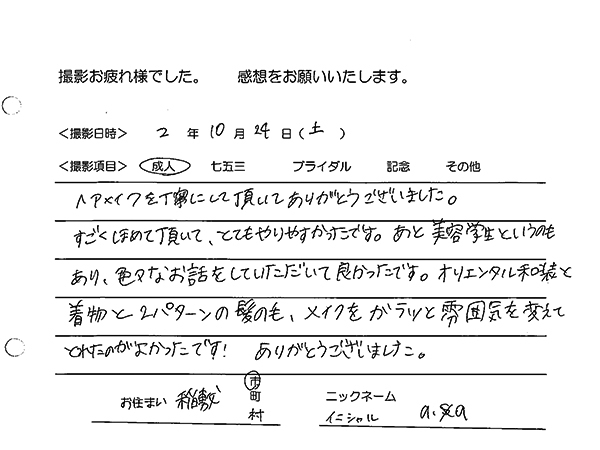 撮影お疲れ様でした。 感想をお願いいたします。
<撮影日時> 2 年 10 月 24 日(土)
<撮影項目> 成人 七五三 ブライダル 記念 その他
ヘアメイクを丁寧にして頂いてありがとうございました。
すごくほめて頂いて、とてもやりやすかったです。あと美容学生というのも
あり、色々なお話をしていただいて良かったです。オリエンタル和装と
着物と2パターンの髪のも、メイクをガラッと雰囲気を変えて
とれたのがよかったです! ありがとうございました。
お住まい 稲敷 市 町 村
ニックネーム イニシャル a.